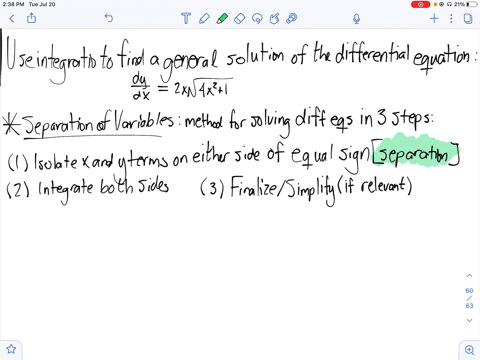 2:38 PM Tue Jul 20
21%
Use integratio to find a general solution of the differential equation:
dy/dx = 2x√4x²+1
* Separation of Variables: method for solving diff eqs in 3 steps:
(1) Isolate x and y terms on either side of equal sign [separation]
(2) Integrate both sides (3) Finalize/Simplify (if relevant)
60
/
63